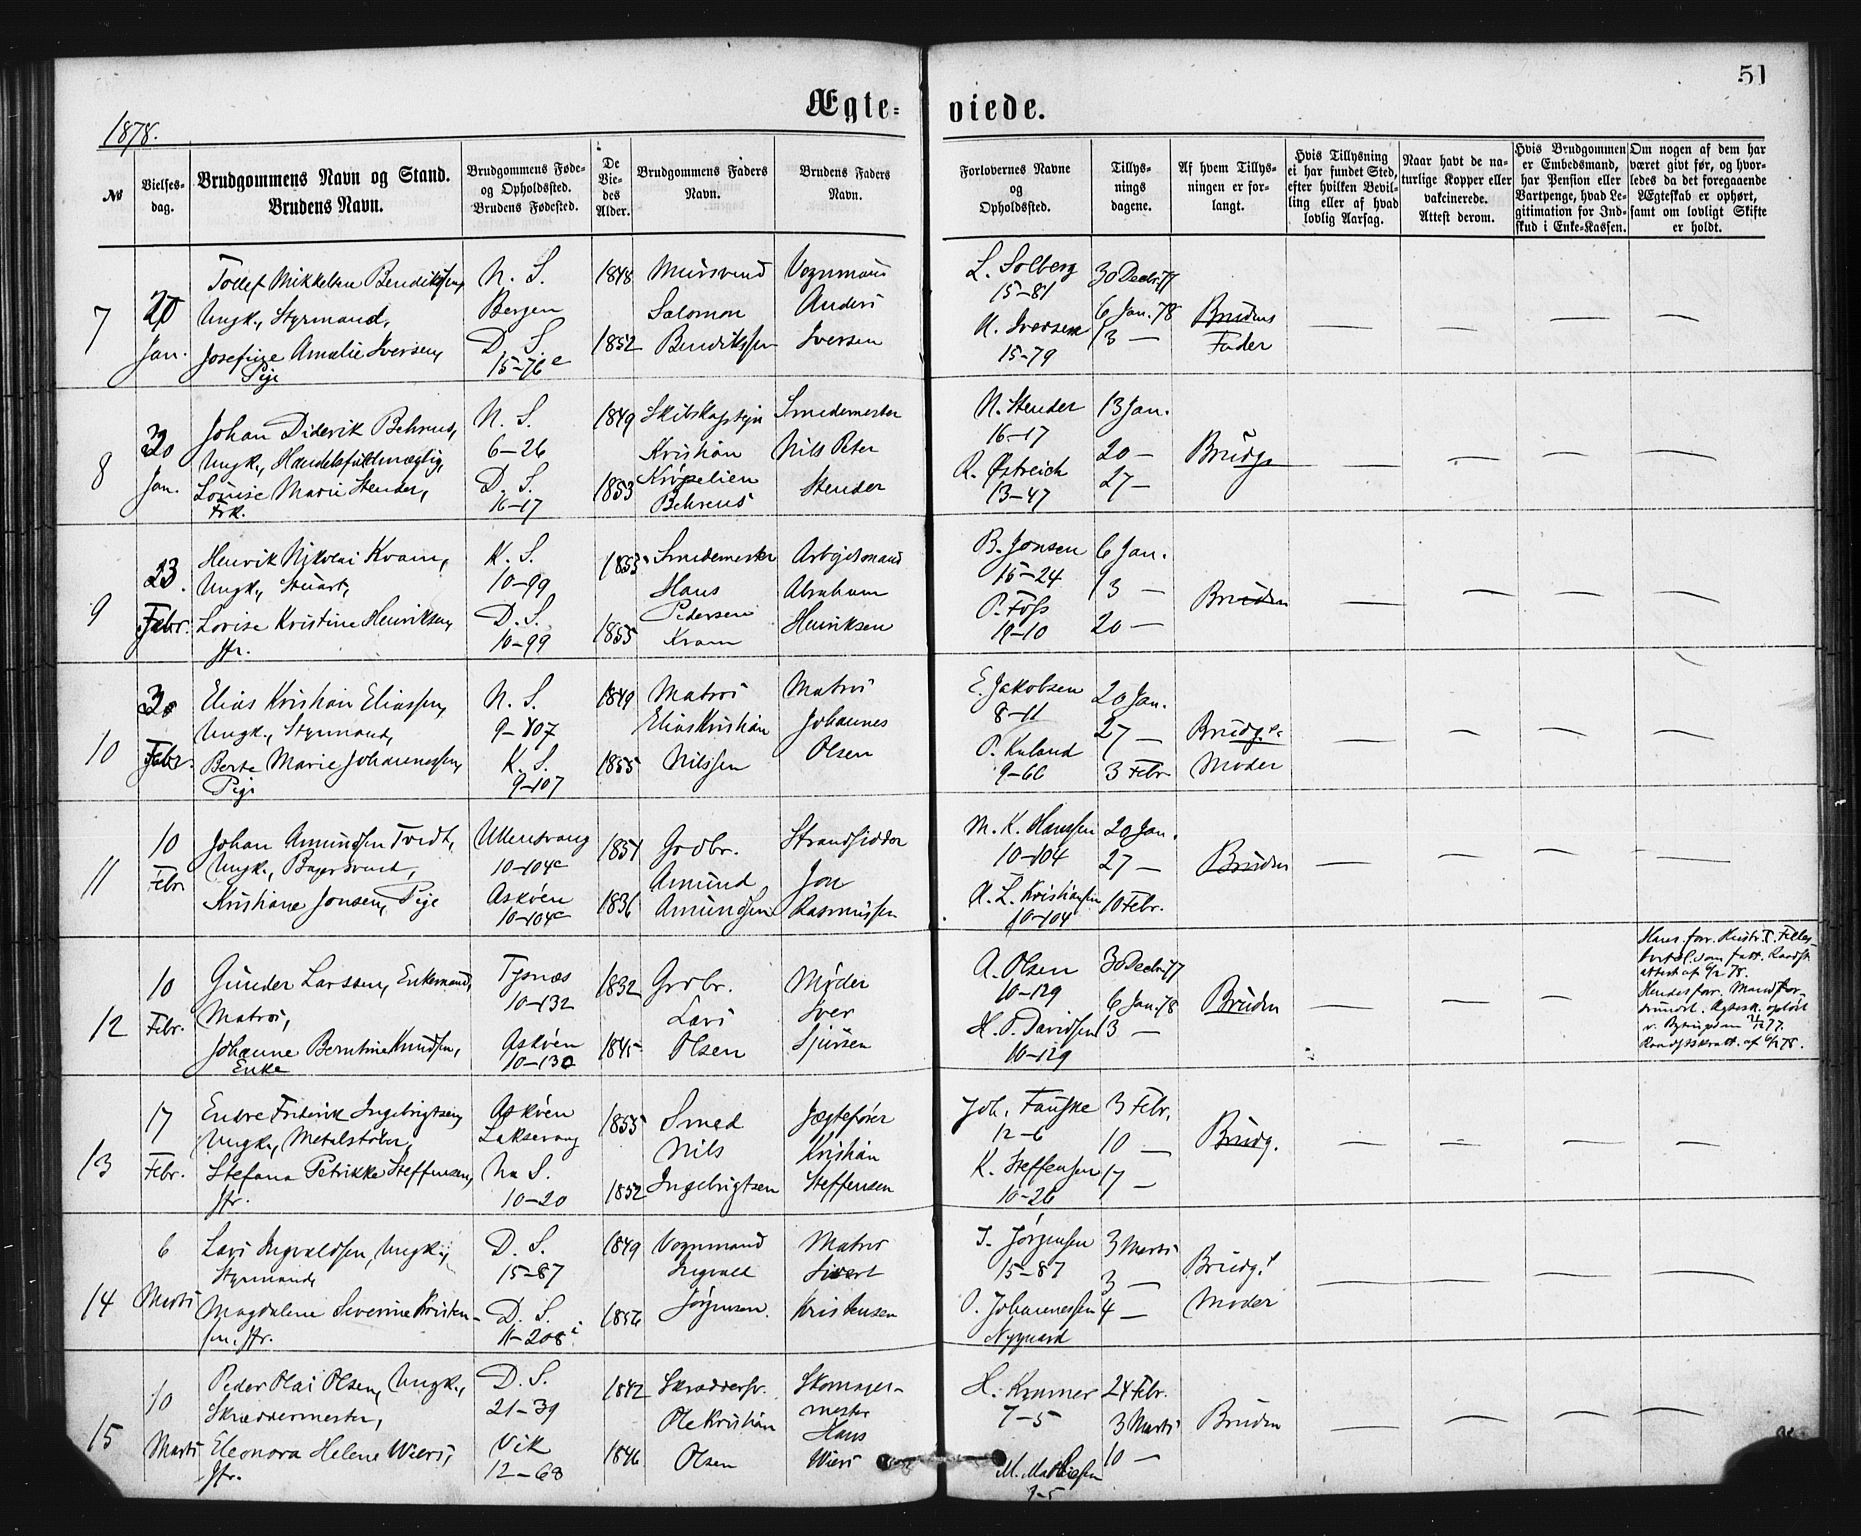 51
Ægte= viede.
1878.
No
Vielses-
dag.
Brudgommens Navn og Stand.
Brudens Navn.
Brudgommens Føde-
og Opholdssted.
Brudens Fødested.
De
Vie-
des
Alder.
Brudgommens Faders
Navn.
Brudens Faders
Navn.
Forlovernes Navne
og
Opholdssted.
Tillys-
nings
dagene.
Af hvem Tillys-
ningen er for-
langt.
Hvis Tillysning
ei har fundet Sted,
efter hvilken Bevil-
ling eller af hvad
lovlig Aarsag.
Naar havt de na-
turlige Kopper eller
vakcinerede.
Attest derom.
Hvis Brudgommen
er Embedsmand,
har Pension eller
Vartpenge, hvad Le-
gitimation for Ind-
skud i Enke-Kassen.
Om nogen af dem har
været givt før, og hvor-
ledes da det foregaaende
Ægteskab er ophørt,
samt om lovligt Skifte
er holdt.
7
20
Jan.
Tollef Mikkelsen Bendiktsen,
Ungk., Styrmand,
Josefine Amalie Iversen,
Pige
N. S.
Bergen
D. S.
15-76e
1848
1852
Mursvend
Salomon
Bendiktsen
Vognmand
Anders
Iversen
L. Solberg
15-81
A. Iversen
15-79
30 Decbr. 77
6 Jan. 78
13 —
Brudens
Fader
8
30
Jan.
Johan Diderik Behrens,
Ungk., Handelsfuldmægtig,
Louise Marie Stender,
Frk.
N. S.
6-26
D. S.
16-17
1849
1853
Skibskaptejn
Kristian
Kröpelien
Behrens
Smedemester
Nils Peter
Stender
N. Stender
16-17
R. Østreich
13-47
13 Jan.
20 —
27 —
Brudg.
9
23.
Febr.
Henrik Nikolai Kvam,
Ungk., Stuart,
Lovise Kristine Henriksen,
Jfr.
K. S.
10-99
D. S.
10-99
1853
1855
Smedemester
Hans
Pedersen
Kvam
Arbejdsmand
Abraham
Henriksen
B. Jonsen
15-24
P. Foss
19-10
6 Jan.
13 —
20 —
Bruden
10
3
Febr.
Elias Kristian Eliassen,
Ungk., Styrmand,
Berte Marie Johannessen,
Pige
N. S.
9-107
K. S.
9-107
1849
1855
Matros
Elias Kristian
Nilssen
Matros
Johannes
Olsen
E. Jakobsen
8-11
9-60
20 Jan.
27 —
3 Febr.
Brudg.s
Moder
11
10
Febr.
Johan Amundsen Tvedt,
Ungk., Bagersvend,
Kristiane Jonsen, Pige
Ullensvang
10-104c
Askøen
10-104c
1851
1836
Grdbr.
Amund
Amundsen
Strandsidder
Jon
Rasmussen
M. K. Hanssen
10-104
A. L. Kristiansen
10-104
20 Jan.
27 —
10 Febr.
Bruden
12
10
Febr.
Gunder Larssen, Enkemand,
Matros,
Johanne Berntine Knudsen,
Enke
Tysnæs
10-132
Askøen
10-130
1832
1845
Grdbr.
Lars
Olsen
Møder
Iver
Sjursen
A. Olsen
10-129
H. P. Davidsen
10-129
30 Decbr. 77
6 Jan. 78
13 —
Bruden
13
17
Febr.
Endre Friderik Ingebrigtsen,
Ungk., Metalstøber,
Stefana Petrikke Steffensen,
Jfr.
Askøen
Laksevaag
N. S.
10-20
1855
1852
Smed
Nils
Ingebrigtsen
Jægtefører
Kristian
Steffensen
Joh. Fauske
12-6
K. Steffensen
10-26
3 Febr.
10 —
17 —
Brudg.
14
6
Marts
Lars Ingvaldsen, Ungk.,
Styrmand,
Magdaline Severine Kristen-
sen, Jfr.
D. S.
15-87
D. S.
11-208i
1849
1856
Vognmand
Ingvald
Jörgensen
Matros
Sivert
Kristensen
J. Jörgensen
15-87
O. Johannessen
Nygaard
3 Marts
3 —
4 —
Brudg.s
Moder
15
10
Marts
Peder Olai Olsen, Ungk.,
Skræddermester,
Eleonora Helene Wiers,
Jfr.
D. S.
21-39
Vik
12-68
1842
1846
Skræddersv.
Ole Kristian
Olsen
Skomager-
mester
Hans
Wiers
H. Kramer
7-5
M. Mathiesen
24 Febr.
3 Marts
10 —
Bruden